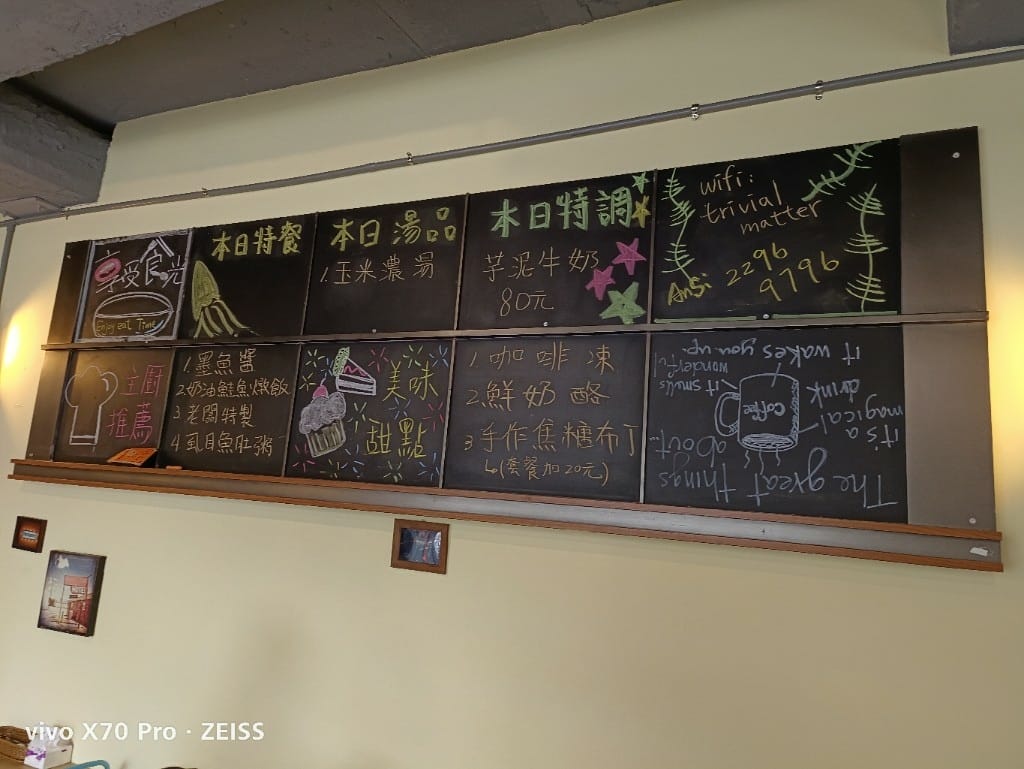 享受食光
Enjoy eat Time
本日特餐
本日湯品
1.玉米濃湯
本日特調
芋泥牛奶
80元
wifi:
trivial
matter
Ansi 2296
9796
主廚
推薦
1.墨魚醬
2.奶油鮭魚燉飯
3 老闆特製
4.虱目魚肚粥
美味
甜點
1.咖啡凍
2.鮮奶酪
3 手作焦糖布丁
(套餐加20元)
The great things
about...
it's a
magical
drink
it wakes you up.
it smells
wonderful!
Coffee
MOTEL
vivo X70 Pro · ZEISS